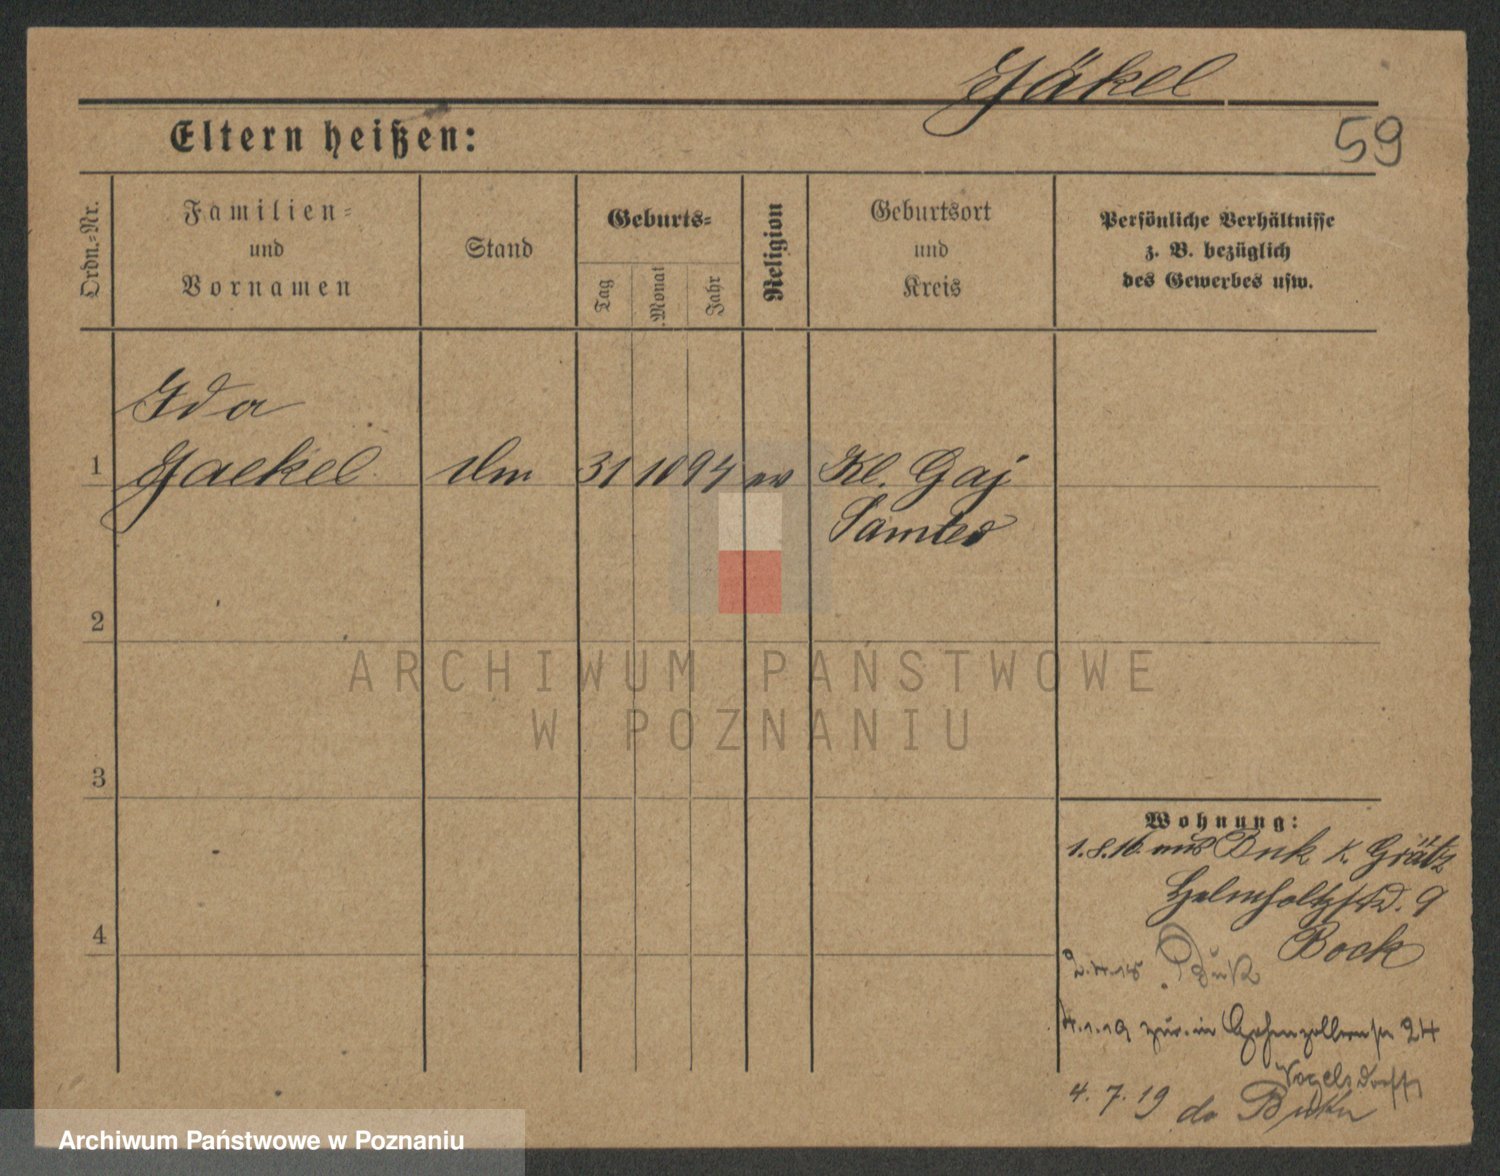 Jäkel
Eltern heißen:
59
Ordn.-Nr.
Familien-
und
Vornamen
Stand
Geburts-
Tag
Monat
Jahr
Religion
Geburtsort
und
Kreis
Persönliche Verhältnisse
z. B. bezüglich
des Gewerbes usw.
Ida
1 Jaekel 31 10 94 ev Kl. Gaj
Samter
2
ARCHIWUM PAŃSTWOWE
W POZNANIU
3
Wohnung:
1.8.16 aus Buk K. Grätz
Helmholtzstr. 9
Bock
4
Buk
1.19 zur. in Hohenzollernstr 24
Vogelsdorff
4.7.19
Archiwum Państwowe w Poznaniu